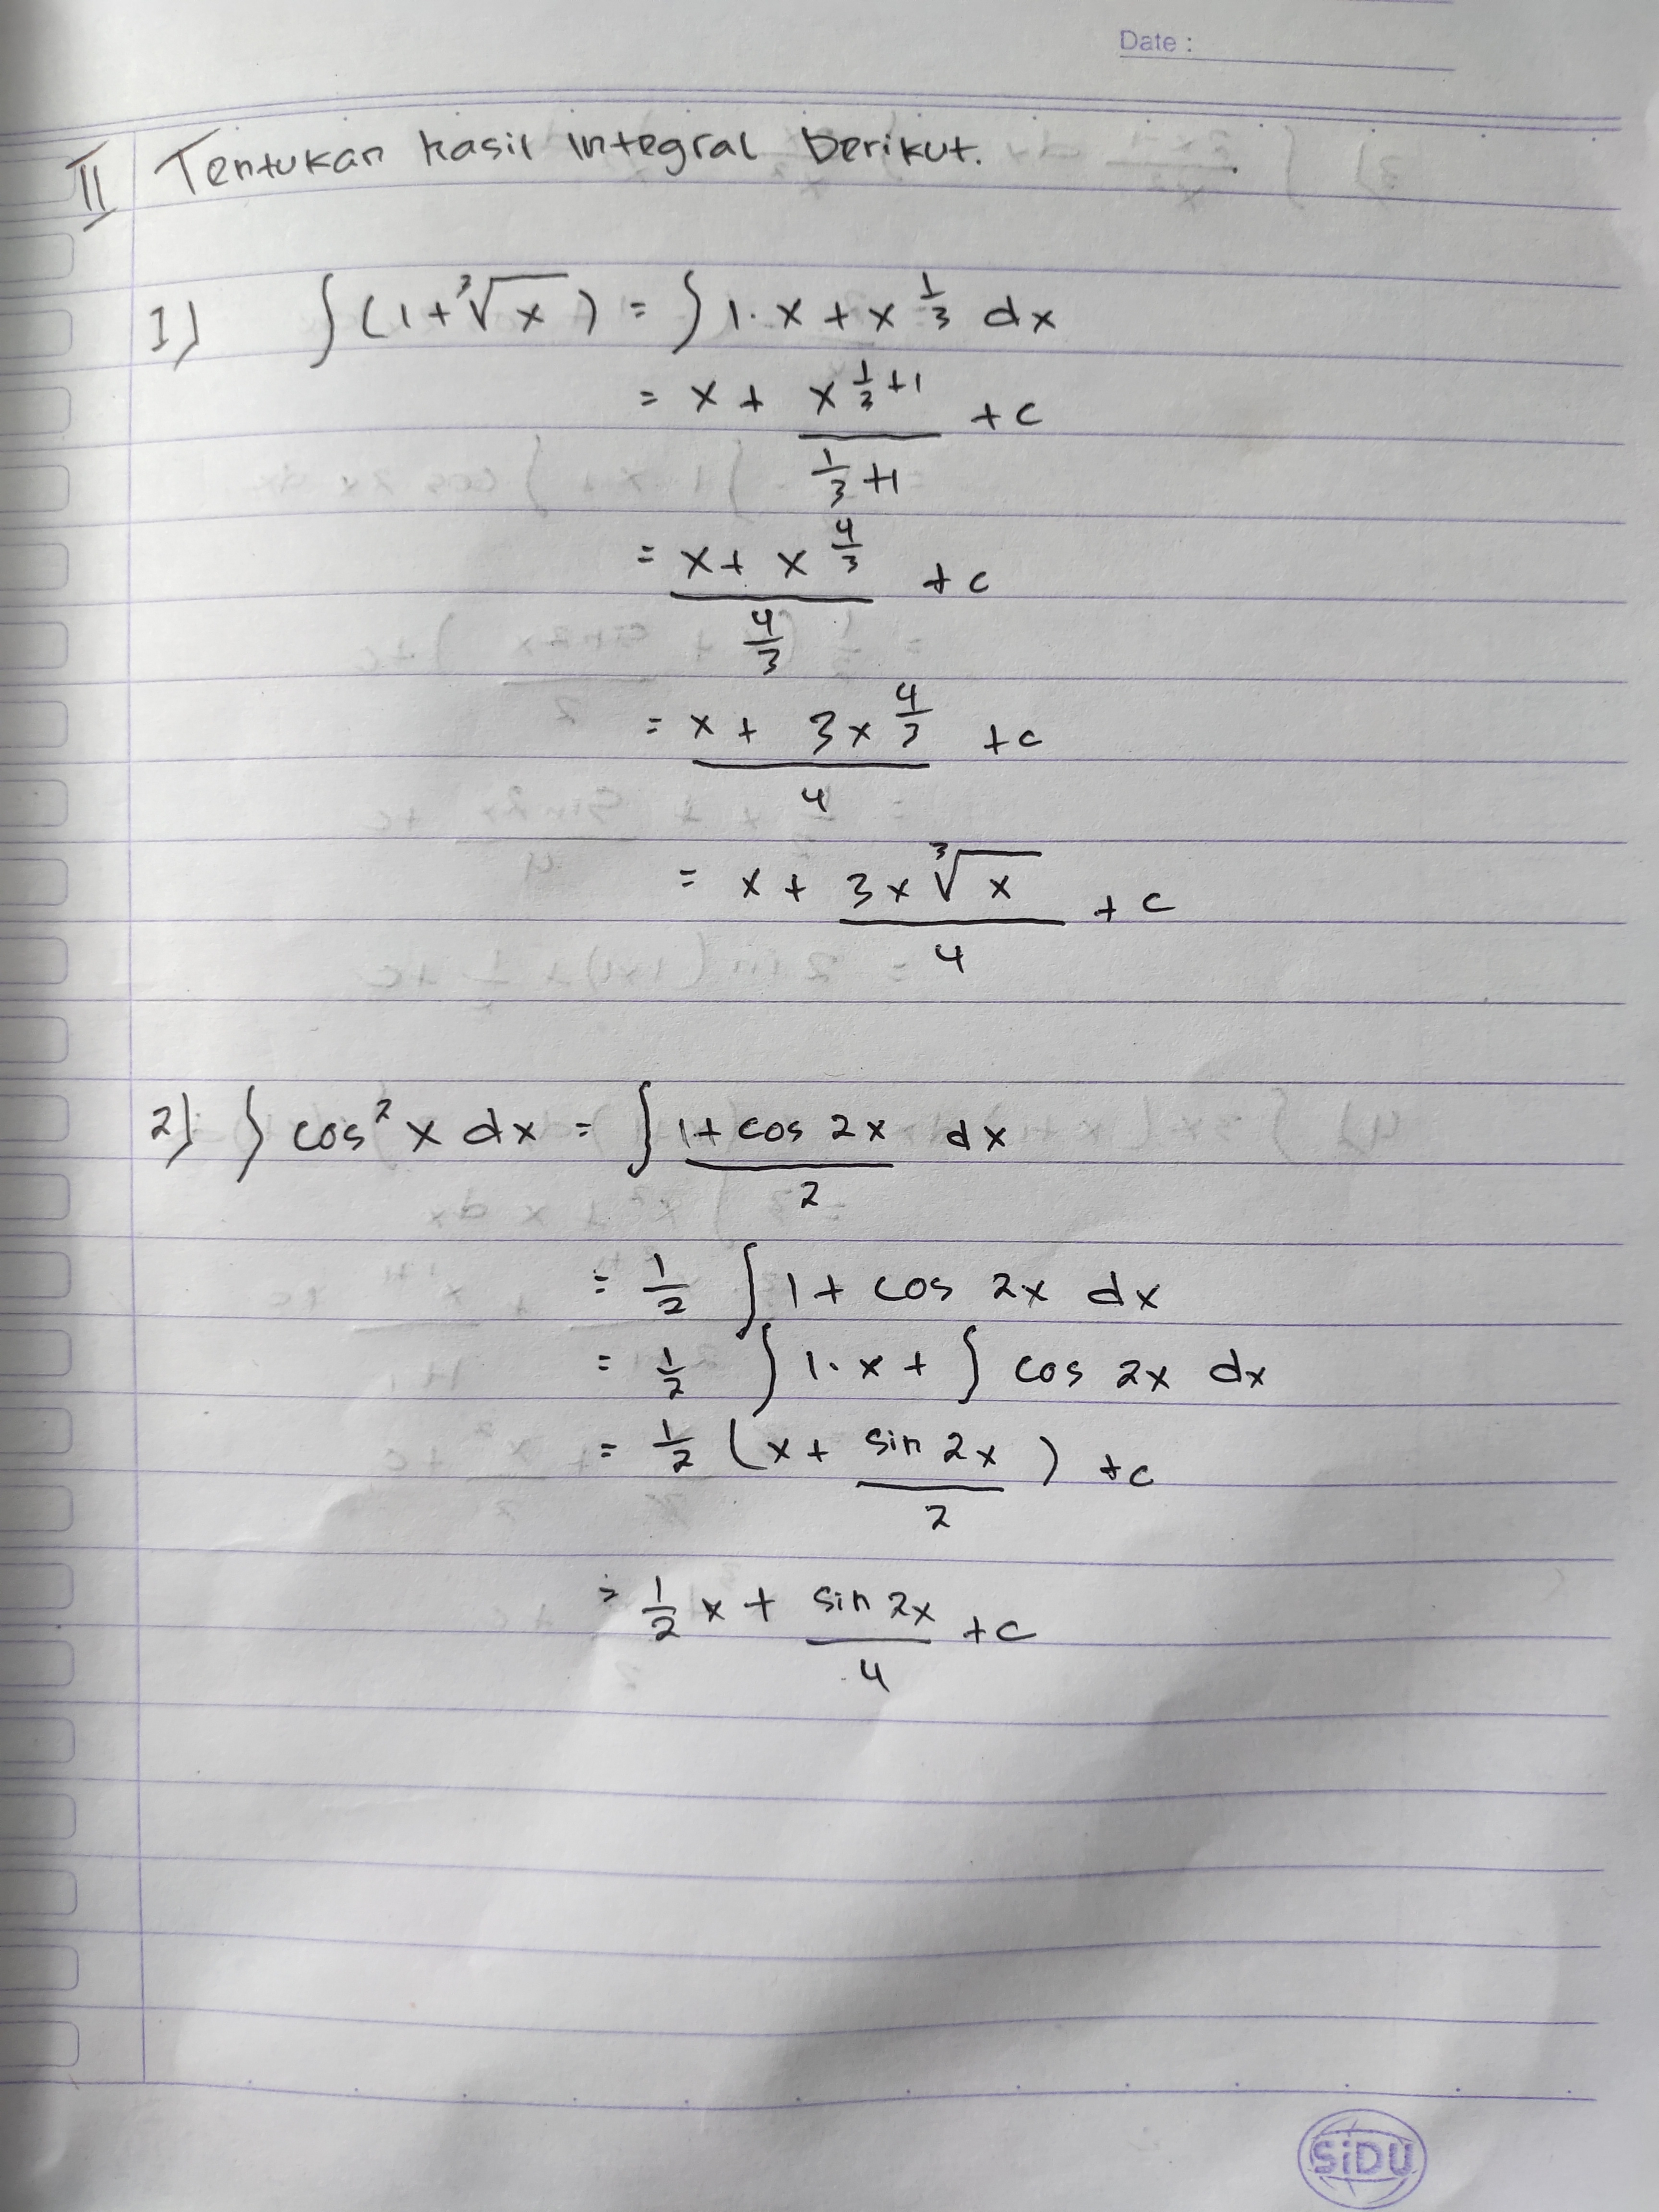 Date :
II Tentukan hasil integral berikut.
1) ∫ (1 + ³√x) = ∫ 1 . x + x^(1/3) dx
= x + x^(1/3 + 1) / (1/3 + 1) + c
= (x + x^(4/3)) / (4/3) + c
= (x + 3x^(4/3)) / 4 + c
= x + (3x ³√x) / 4 + c
2) ∫ cos² x dx = ∫ (1 + cos 2x) / 2 dx
= 1/2 ∫ 1 + cos 2x dx
= 1/2 ∫ 1 . x + ∫ cos 2x dx
= 1/2 (x + (sin 2x) / 2) + c
= 1/2 x + (sin 2x) / 4 + c
SiDU